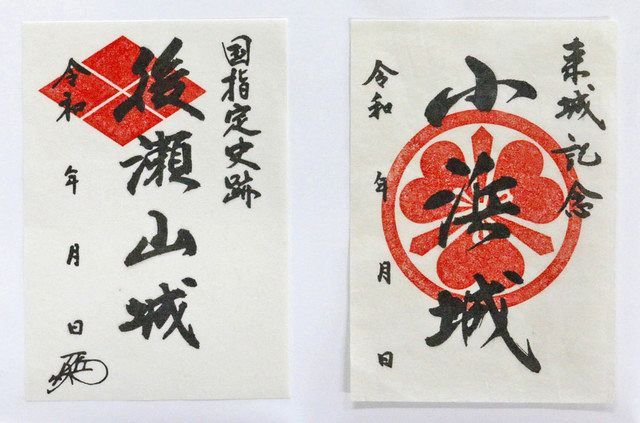 国指定史跡
後瀬山城
令和 年 月 日
来城記念
小浜城
令和 年 月 日